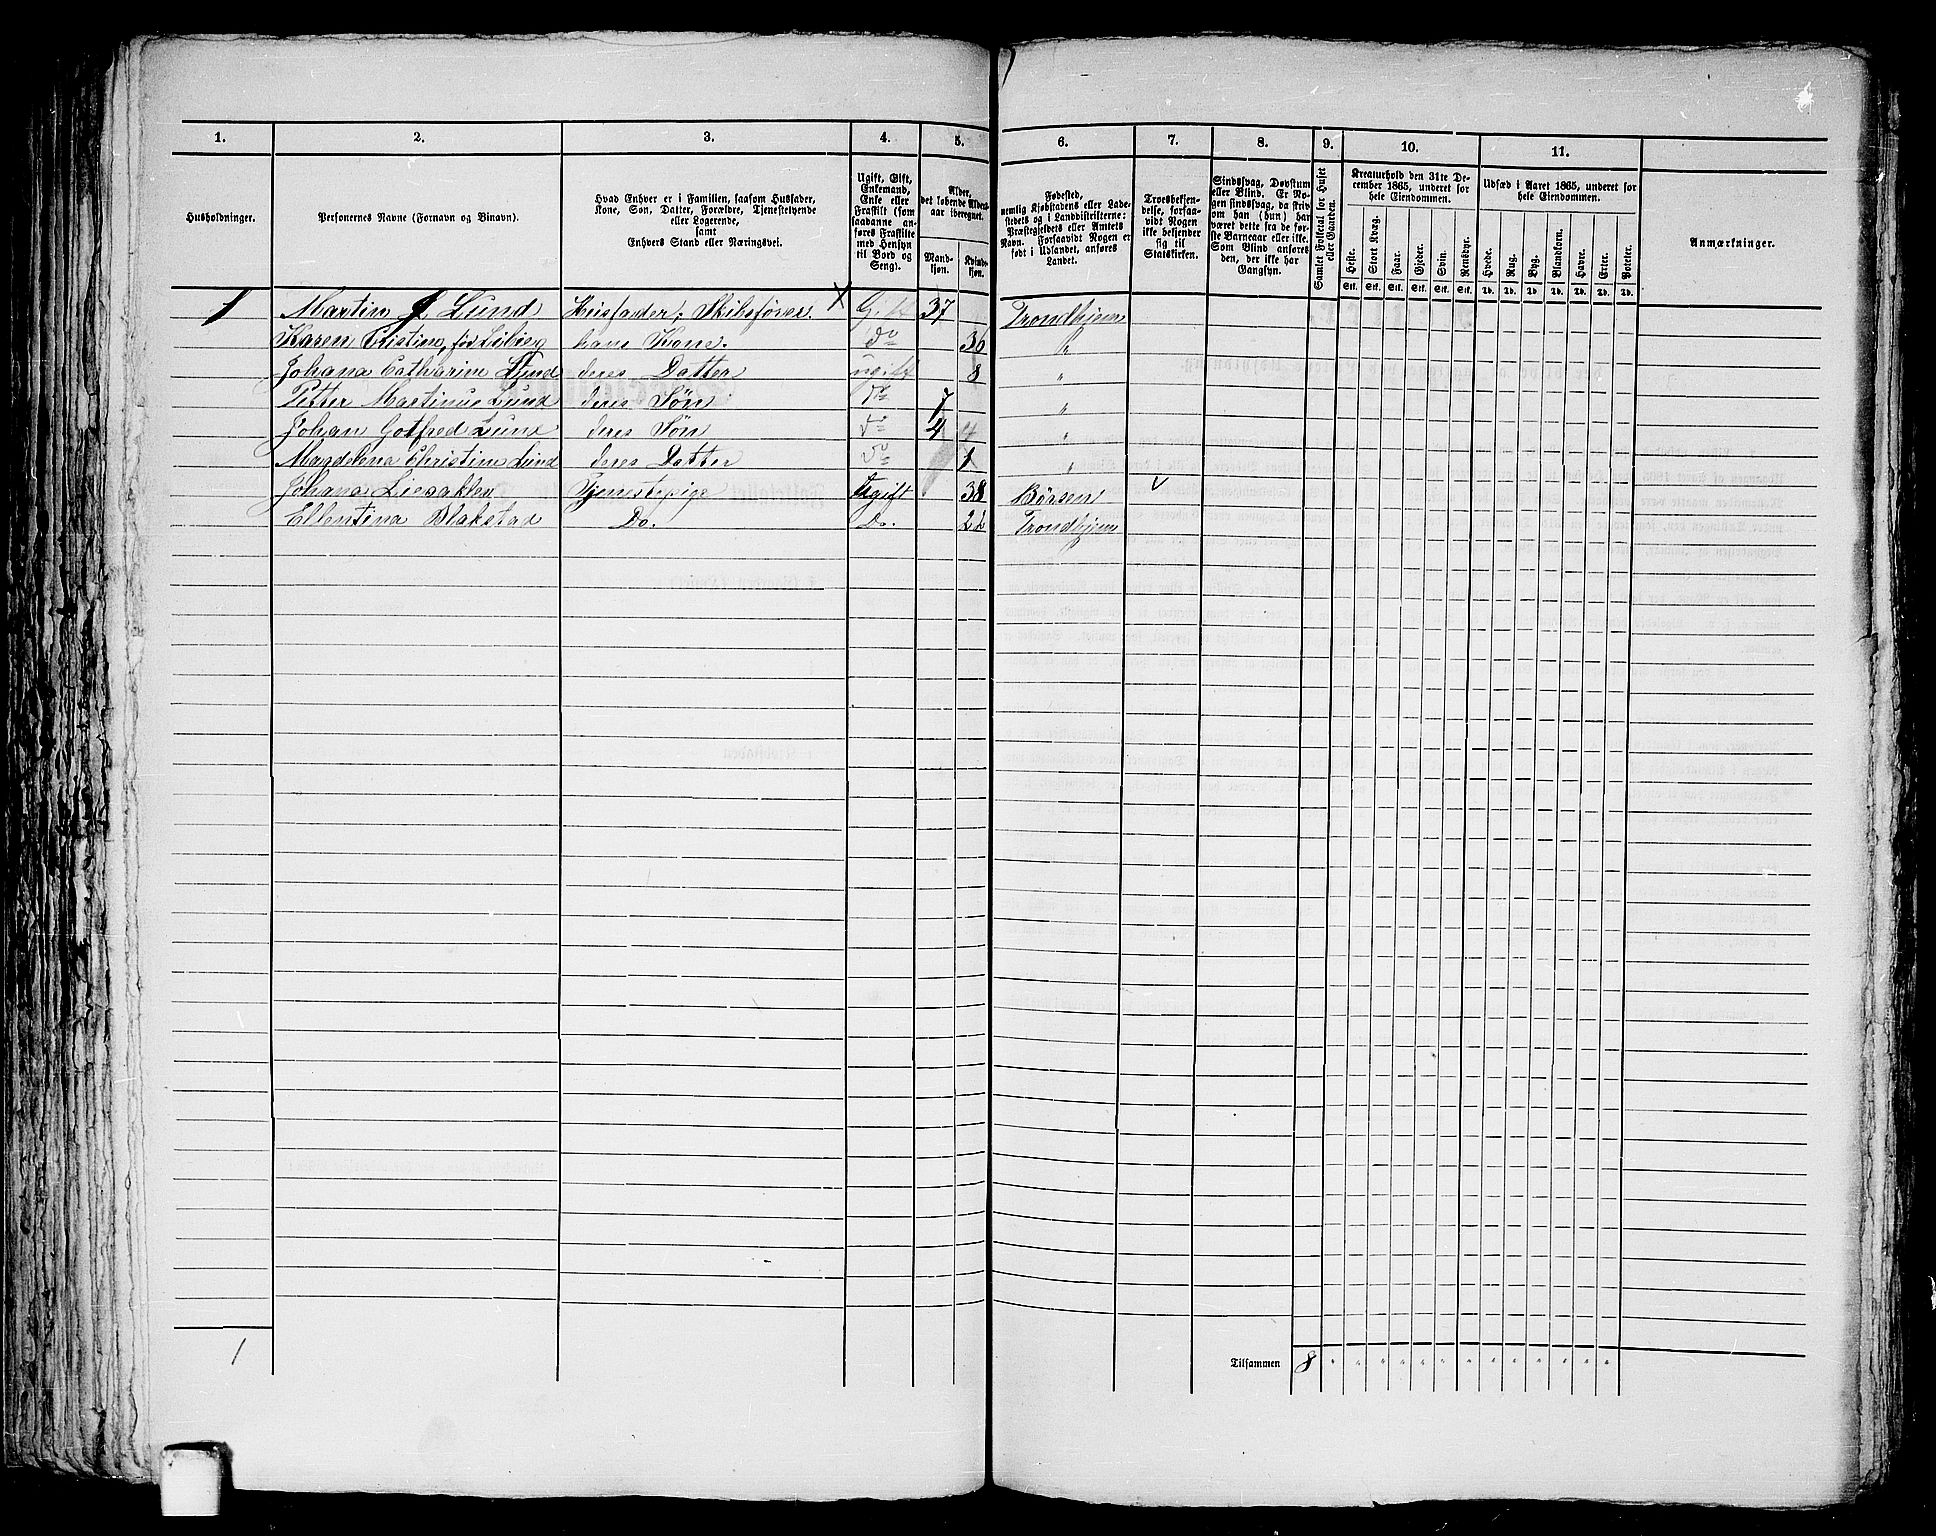 1. 2. 3. 4. 5. 6. 7. 8. 9. 10. 11.
Husholdninger.
Personernes Navne (Fornavn og Binavn).
Hvad Enhver er i Familien, saasom Husfader,
Kone, Søn, Datter, Forældre, Tjenestetyende
eller Logerende,
samt
Enhvers Stand eller Næringsvei.
Ugift, Gift,
Enkemand,
Enke eller
Fraskilt (som
saadanne an-
føres Fraskilte
med Hensyn
til Bord og
Seng).
Alder,
det løbende Alders-
aar iberegnet.
Mand-
kjøn.
Kvinde-
kjøn.
Fødested,
nemlig Kjøbstadens eller Lade-
stedets og i Landdistrikterne:
Præstegjeldets eller Amtets
Navn. Forsaavidt Nogen er
født i Udlandet, anføres
Landet.
Troesbekjen-
delse, forsaa-
vidt Nogen
ikke bekjender
sig til
Statskirken.
Sindssvag, Døvstum
eller Blind. Er No-
gen sindssvag, da skriv
om han (hun) har
været dette fra de før-
ste Barneaar eller ikke.
Som Blind anføres
den, der ikke har
Gangsyn.
Samlet Folketal for Huset
eller Gaarden.
Kreaturhold den 31te De-
cember 1865, underet for
hele Eiendommen.
Heste. Stort Kvæg. Faar. Gjeder. Svin. Rensdyr.
Stk. Stk. Stk. Stk. Stk. Stk.
Udsæd i Aaret 1865, underet for
hele Eiendommen.
Hvede. Rug. Byg. Blandkorn. Havre. Erter. Poteter.
Td. Td. Td. Td. Td. Td. Td.
Anmærkninger.
1 Martin J. Lund Husfader, Skibsfører. X Gift 37 Trondhjem
Karen Cristien, født hans Kone. do 36 "
Johana Catharine Lund deres Datter ugift 8 "
Petter Martinus Lund deres Søn do 7 "
Johan Gotfred Lund deres Søn do 4 "
Magdelena Christine Lund deres Datter do 1 "
Johana Tjenestepige Ugift 38 Børsen
Ellentina Blakstad Do. Do. 22 Trondhjem
1
Tilsammen 8 " " " " " " " " " " " "